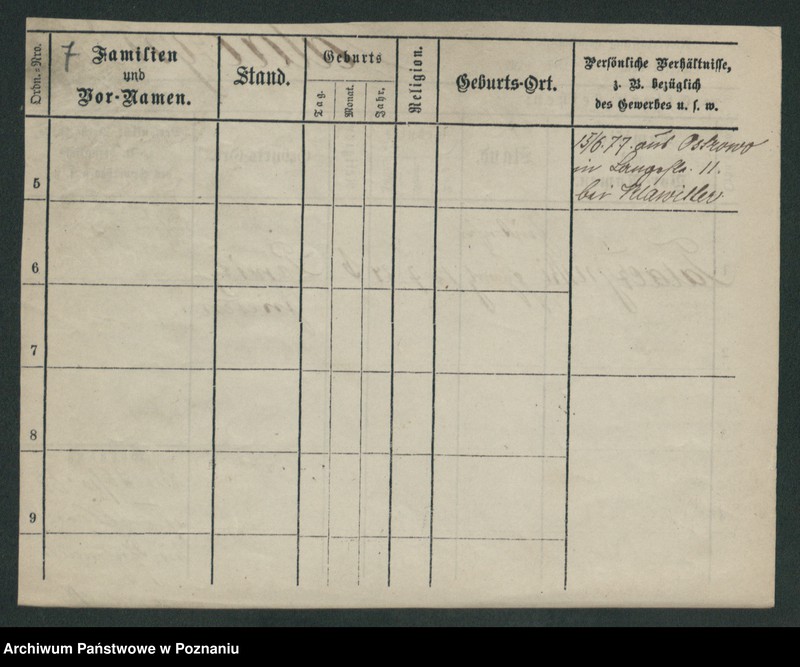 Ordn.=Nro.
7 Familien
und
Vor=Namen.
Stand.
Geburts
Tag.
Monat.
Jahr.
Religion.
Geburts=Ort.
Persönliche Verhältnisse,
z. B. bezüglich
des Gewerbes u. s. w.
15/6.77. aus Ostrowo
in Langestr. 11.
bei Klawitter
5
6
7
8
9
Archiwum Państwowe w Poznaniu